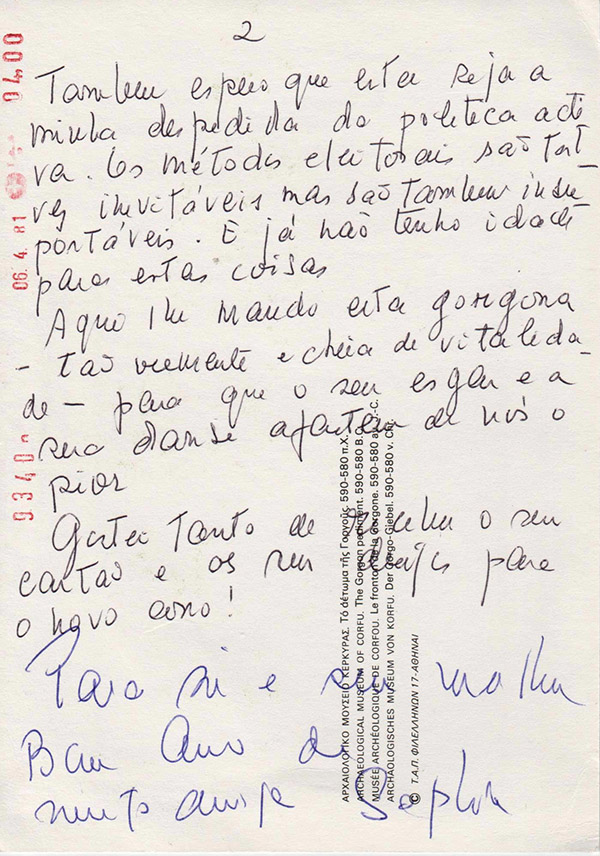 2
Tambem espero que esta seja a
minha despedida da politica acti-
va. Os métodos eleitorais são tal-
vez inevitáveis mas são tambem insu-
portáveis. E já não tenho idade
para estas coisas
Aqui lhe mando esta gorgona
- tão veemente e cheia de vitalida-
de - para que o seu esgar e a
sua danse afastem de nós o
pior
Gostei tanto de receber o seu
cartão e os seus desejos para
o novo ano!
Para si e sua mulher
Bom Ano da
muito amiga Sophia
ΑΡΧΑΙΟΛΟΓΙΚΟ ΜΟΥΣΕΙΟ ΚΕΡΚΥΡΑΣ. Τό ἀέτωμα τῆς Γοργοῦς. 590-580 π.Χ.
ARCHAEOLOGICAL MUSEUM OF CORFU. The Gorgon pediment. 590-580 B.C.
MUSÉE ARCHÉOLOGIQUE DE CORFOU. Le fronton de la Gorgone. 590-580 av. J.-C.
ARCHÄOLOGISCHES MUSEUM VON KORFU. Der Gorgo-Giebel. 590-580 v. Chr.
© Τ.Α.Π. ΦΙΛΕΛΛΗΝΩΝ 17-ΑΘΗΝΑΙ
9340 06.4.81 0400